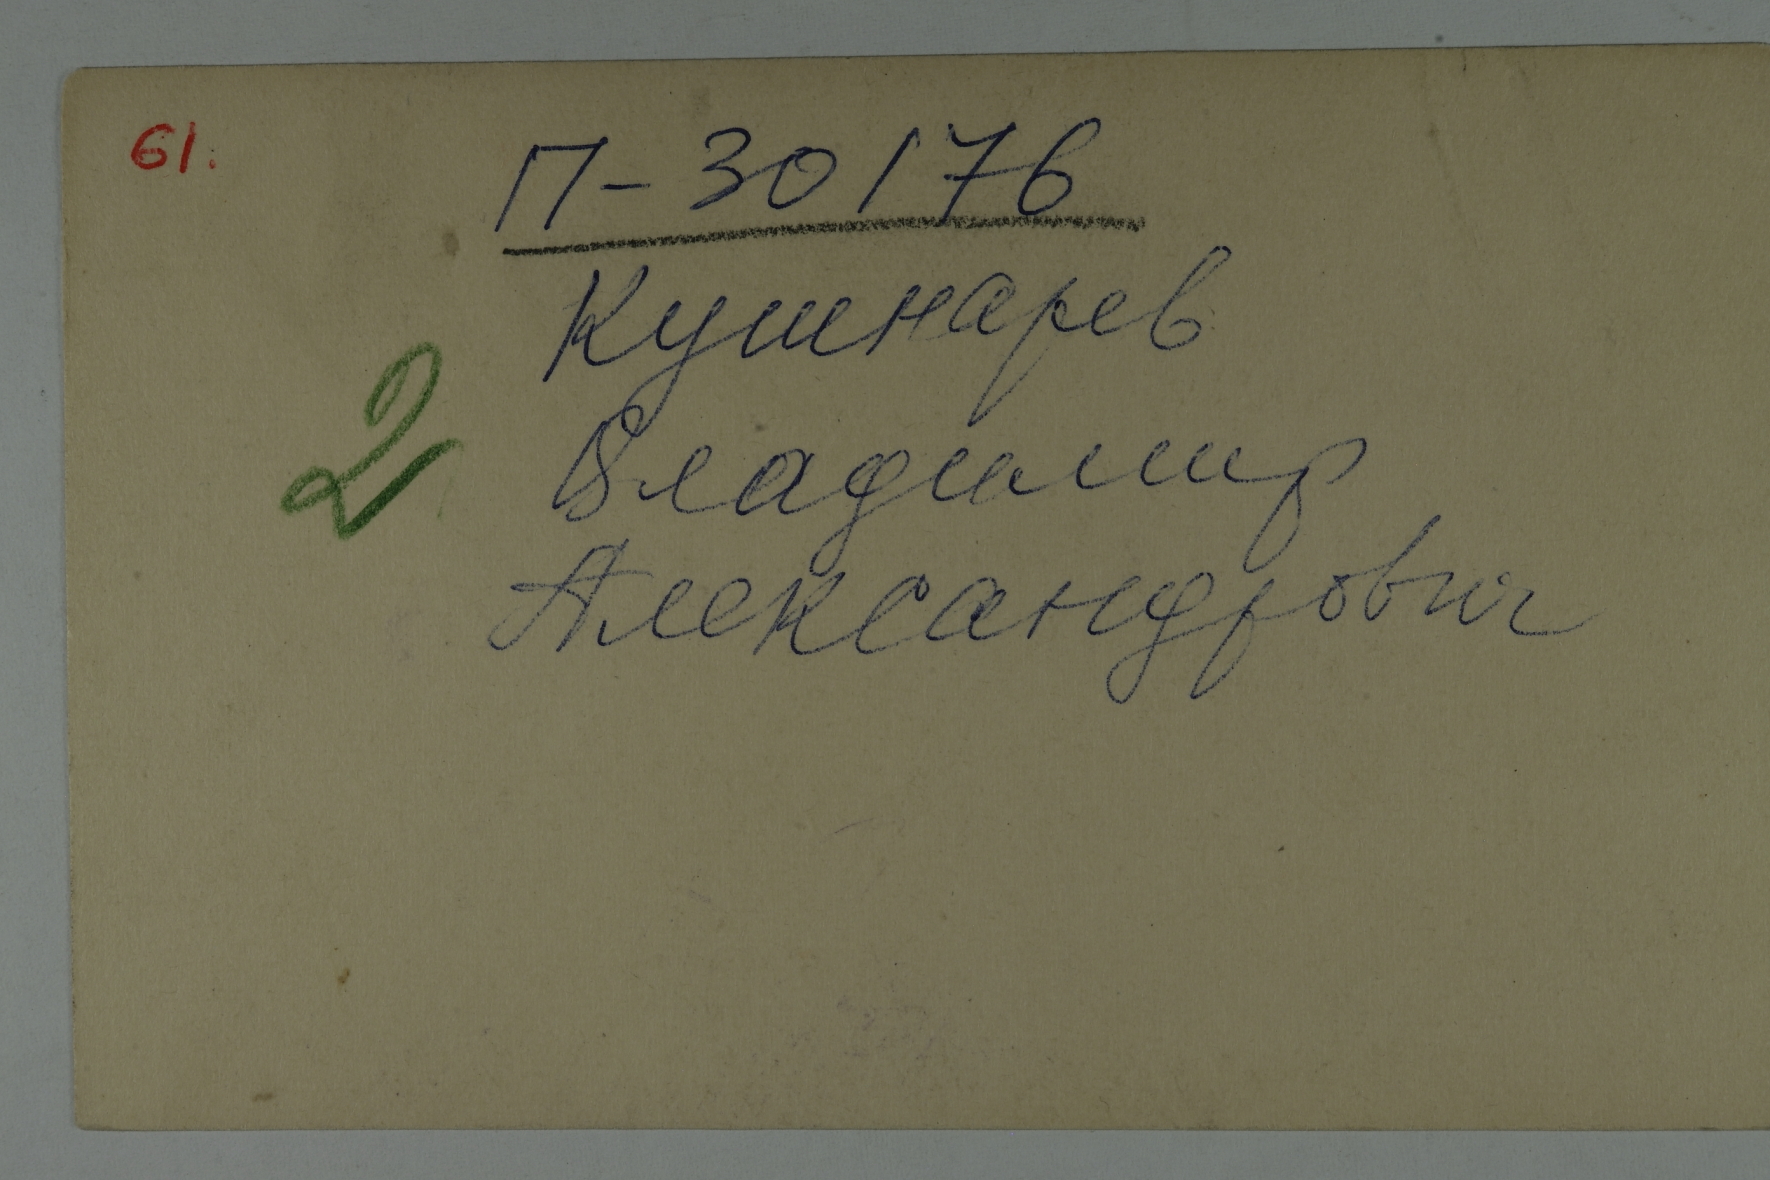 61.
П-30176
Кушнарев
2
Владимир
Александрович